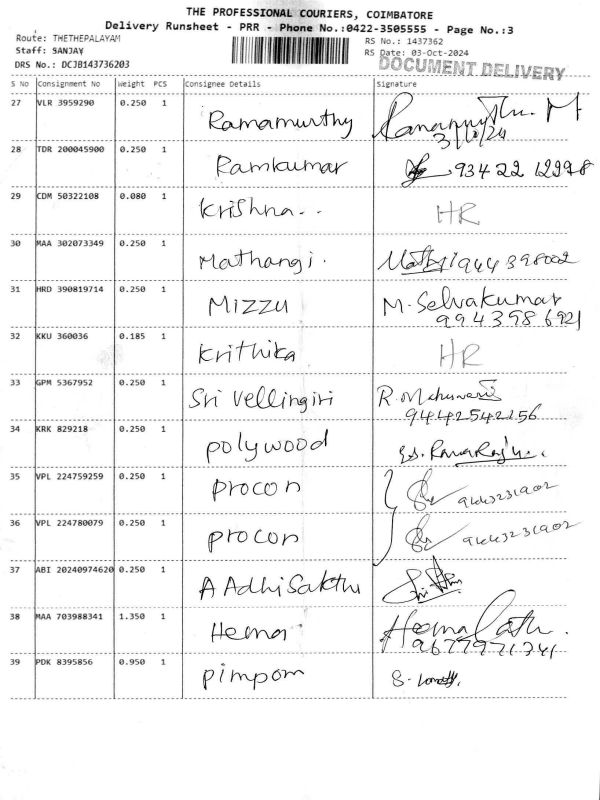 THE PROFESSIONAL COURIERS, COIMBATORE
Delivery Runsheet - PRR - Phone No.:0422-3505555 - Page No.:3
Route: THETHEPALAYAM RS No.: 1437362
Staff: SANJAY RS Date: 03-Oct-2024
DRS No.: DCJB143736203 DOCUMENT DELIVERY
S No Consignment No Weight PCS Consignee Details Signature
27 VLR 3959290 0.250 1 Ramamurthy
3/10/24
28 TDR 200045900 0.250 1 Ramkumar 93422 12298
29 CDM 50322108 0.080 1 Krishna.. HR
30 MAA 302073349 0.250 1 Mathangi.
31 HRD 390819714 0.250 1 Mizzu M. Selvakumar
9943986921
32 KKU 360036 0.185 1 Krithika HR
33 GPM 5367952 0.250 1 Sri Vellingiri
34 KRK 829218 0.250 1 polywood
35 VPL 224759259 0.250 1 procon
36 VPL 224780079 0.250 1 procon
37 ABI 20240974620 0.250 1 A Adhi Sakthi
38 MAA 703988341 1.350 1 Hema
9677971341
39 PDK 8395856 0.950 1 pimpom